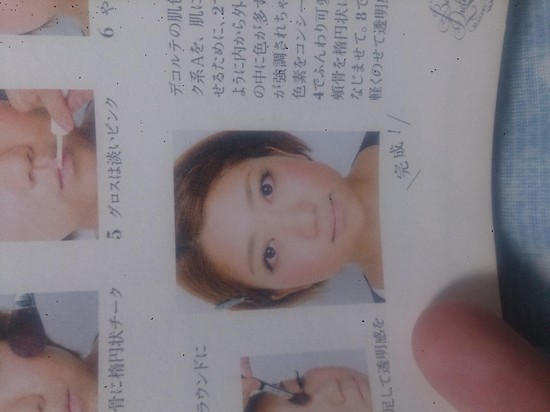 デコルテの肌色
ク系Aを、肌に
せるために、2
ように内から外
の中に色が多す
が強調されちゃ
色素をコンシー
4でふんわり可愛
頰骨を楕円状に
なじませて。8で
軽くのせて透明感
完成！
6 や
5 グロスは淡いピンク
骨に楕円状チーク
ラウンドに
足して透明感を